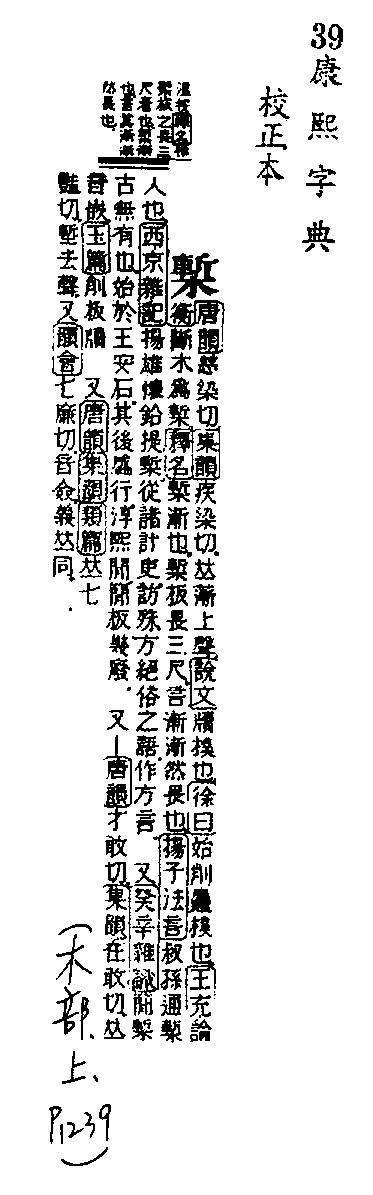 39
康熙字典
校正本
按釋名
槧板之長三
尺者也槧漸
也言其漸漸
然長也。
槧
唐韻慈染切集韻疾染切𠀤漸上聲說文牘樸也徐曰始削麤樸也王充論
衡斷木爲槧釋名槧漸也槧板長三尺言漸漸然長也揚子法言叔孫通槧
人也西京雜記揚雄懷鉛提槧從諸計吏訪殊方絕俗之語作方言 又癸辛雜識簡槧
古無有也始於王安石其後盛行淳熙閒簡板幾廢。 又唐韻才敢切集韻在敢切𠀤
音嵌玉篇削板牘 又唐韻集韻類篇𠀤七
豔切塹去聲又韻會七廉切音僉義𠀤同。
(木部、上、P1239)